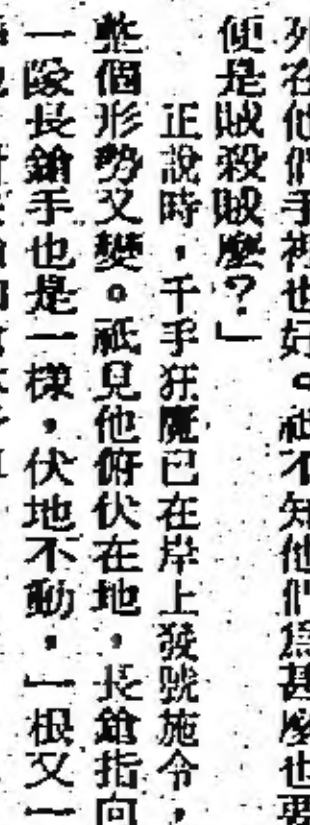 列在他們手裡也好。祇不知他們爲甚麼也要
便是賊殺賊麼？」
正說時，千手狂魔已在岸上發號施令，
整個形勢又變。祇見他俯伏在地，長鎗指向
一隊長鎗手也是一樣，伏地不動，一根又一